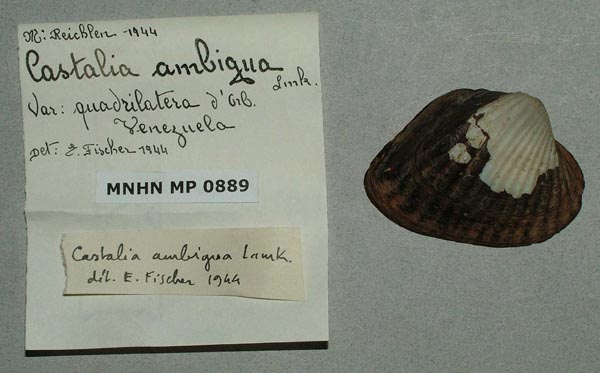 M: Reichlen - 1944
Castalia ambigua Lmk.
Var: quadrilatera d'Orb.
Venezuela
Det: E. Fischer - 1944
MNHN MP 0889
Castalia ambigua Lamk.
dét. E. Fischer 1944